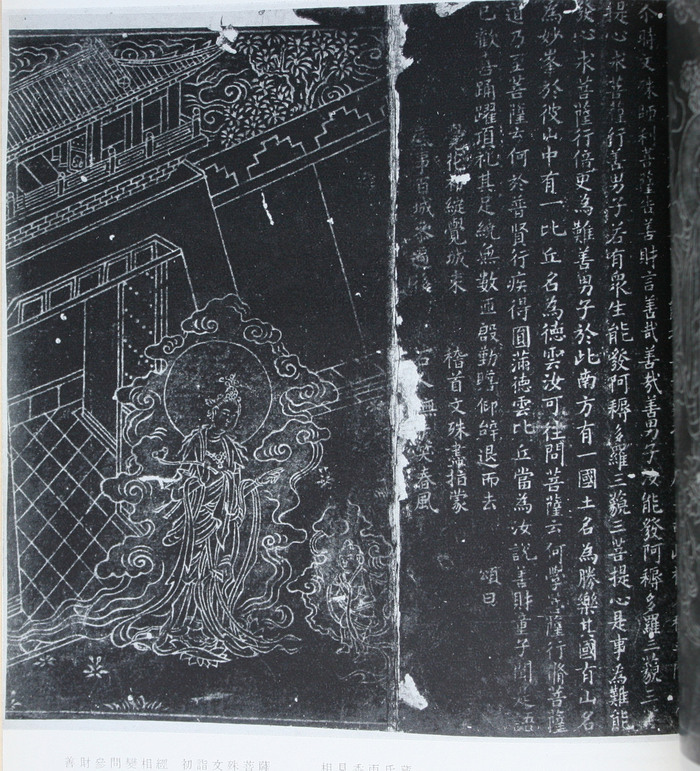 尒時文殊師利菩薩告善財言善哉善哉善男子汝能發阿耨多羅三藐三菩
提心求菩薩行善男子若有眾生能發阿耨多羅三藐三菩提心是事為難能
發心求菩薩行倍更為難善男子於此南方有一國土名為勝樂其國有山名
為妙峯於彼山中有一比丘名為德雲汝可往問菩薩云何學菩薩行脩菩薩
道乃至菩薩云何於普賢行疾得圓滿德雲比丘當為汝說善財童子聞是語
已歡喜踊躍頂礼其足繞無數匝殷勤瞻仰辝退而去 頌曰
花 綻覺城東 稽首文殊盡指蒙
事百城參遍 古人 笑春風
善財參問變相經 初詣文殊菩薩